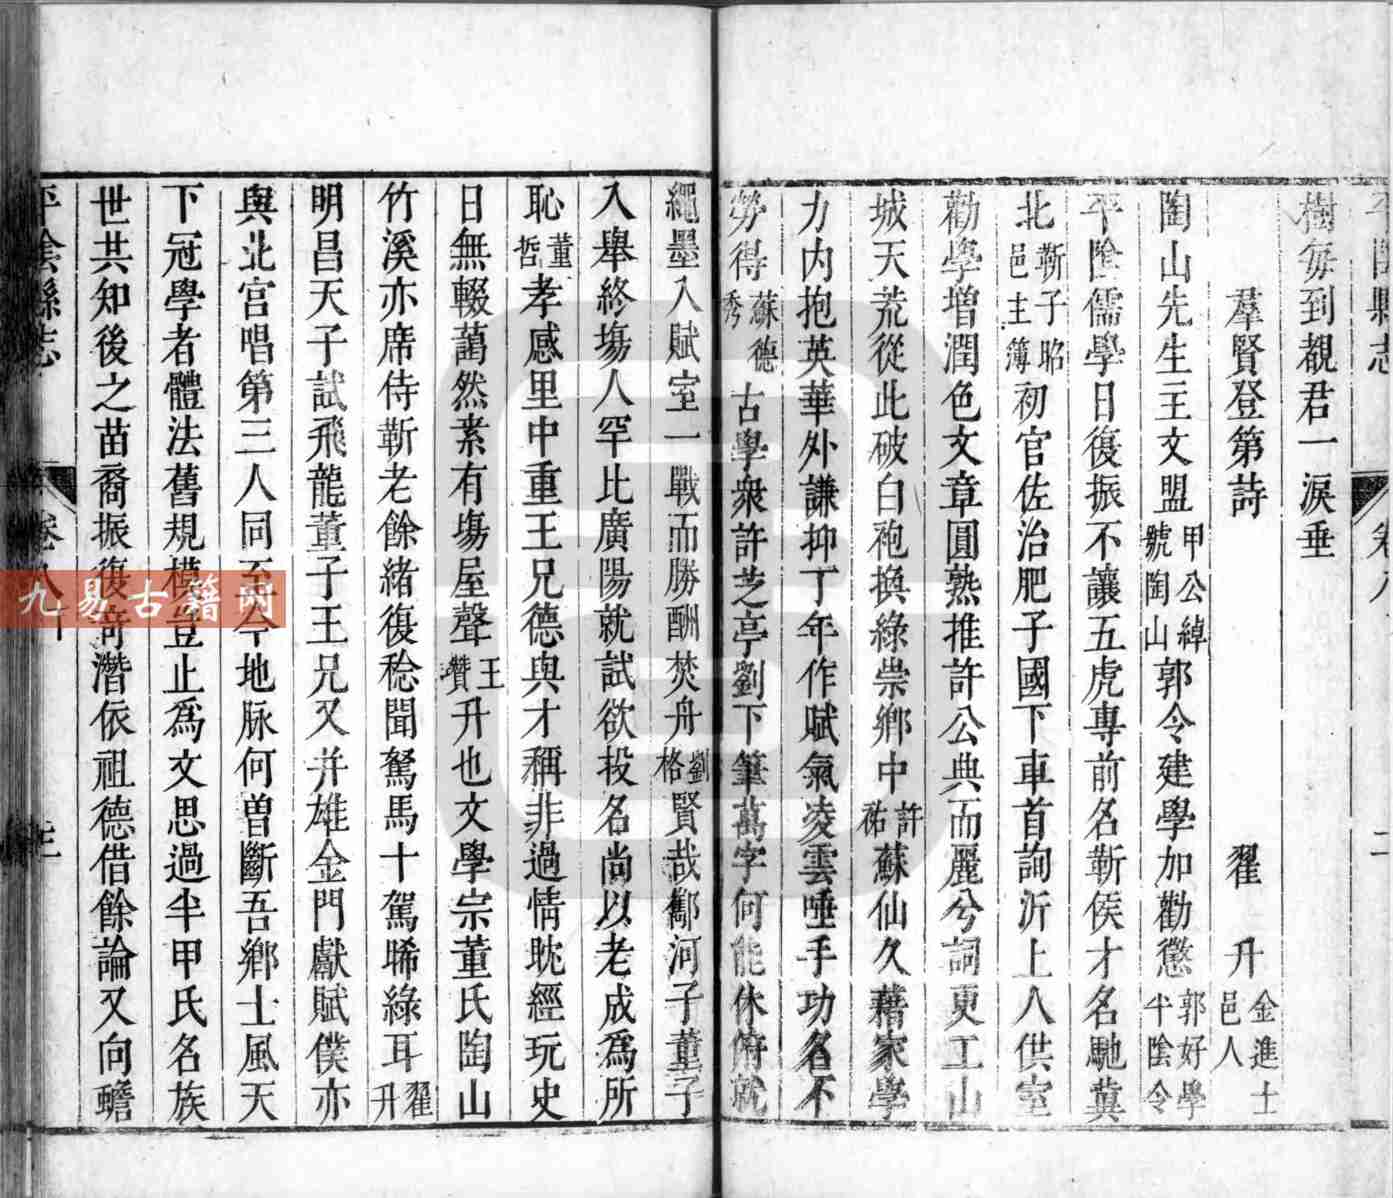 平陰縣志 卷八 二
樹每到覩君一淚垂
羣賢登第詩 翟升 金進士邑人
陶山先生主文盟 甲公綽號陶山 郭令建學加勸懲 郭好學平陰令
平陰儒學日復振不讓五虎專前名靳侯才名馳冀
北 靳子昭邑主簿 初官佐治肥子國下車首詢沂上人供室
勸學增潤色文章圓熟推許公典而麗兮詞更工山
城天荒從此破白袍換綠崇鄉中 許祐 蘇仙久藉家學
力內抱英華外謙抑丁年作賦氣凌雲唾手功名不
勞得 蘇德秀 古學衆許芝亭劉下筆萬字何能休俯就
繩墨入賦室一戰而勝酬焚舟 劉格 賢哉鄰河子董子
入舉終場人罕比廣陽就試欲投名尚以老成爲所
恥 董哲 孝感里中重王兄德與才稱非過情耽經玩史
日無輟藹然素有塲屋聲 王瓚 升也文學宗董氏陶山
竹溪亦席侍靳老餘緒復稔聞駑馬十駕睎綠耳 翟升
明昌天子試飛龍董子王兄又并雄金門獻賦僕亦
與北宮唱第三人同至今地脉何曾斷吾鄉士風天
下冠學者體法舊規模豈止爲文思過半甲氏名族
世共知後之苗裔振復奇潛依祖德借餘論又向蟾
平陰縣志 卷八
九易古籍网